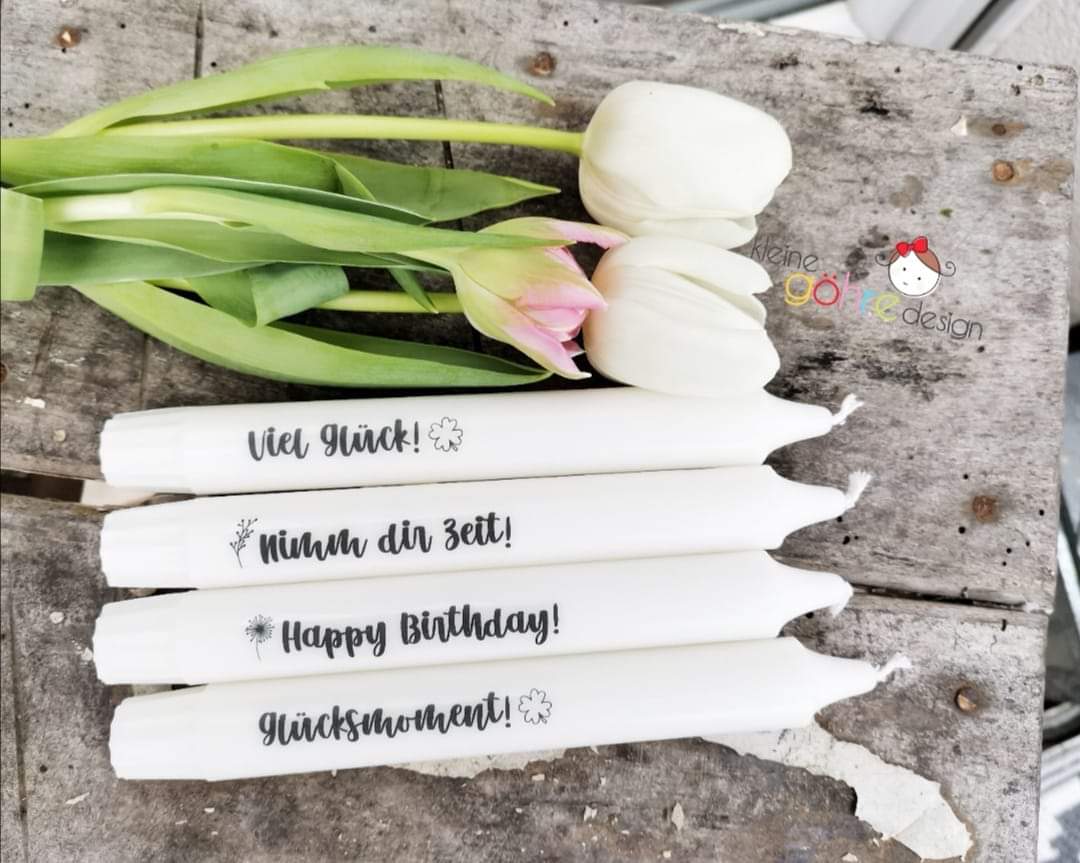 kleine
göhre design
Viel Glück!
Nimm dir Zeit!
Happy Birthday!
Glücksmoment!